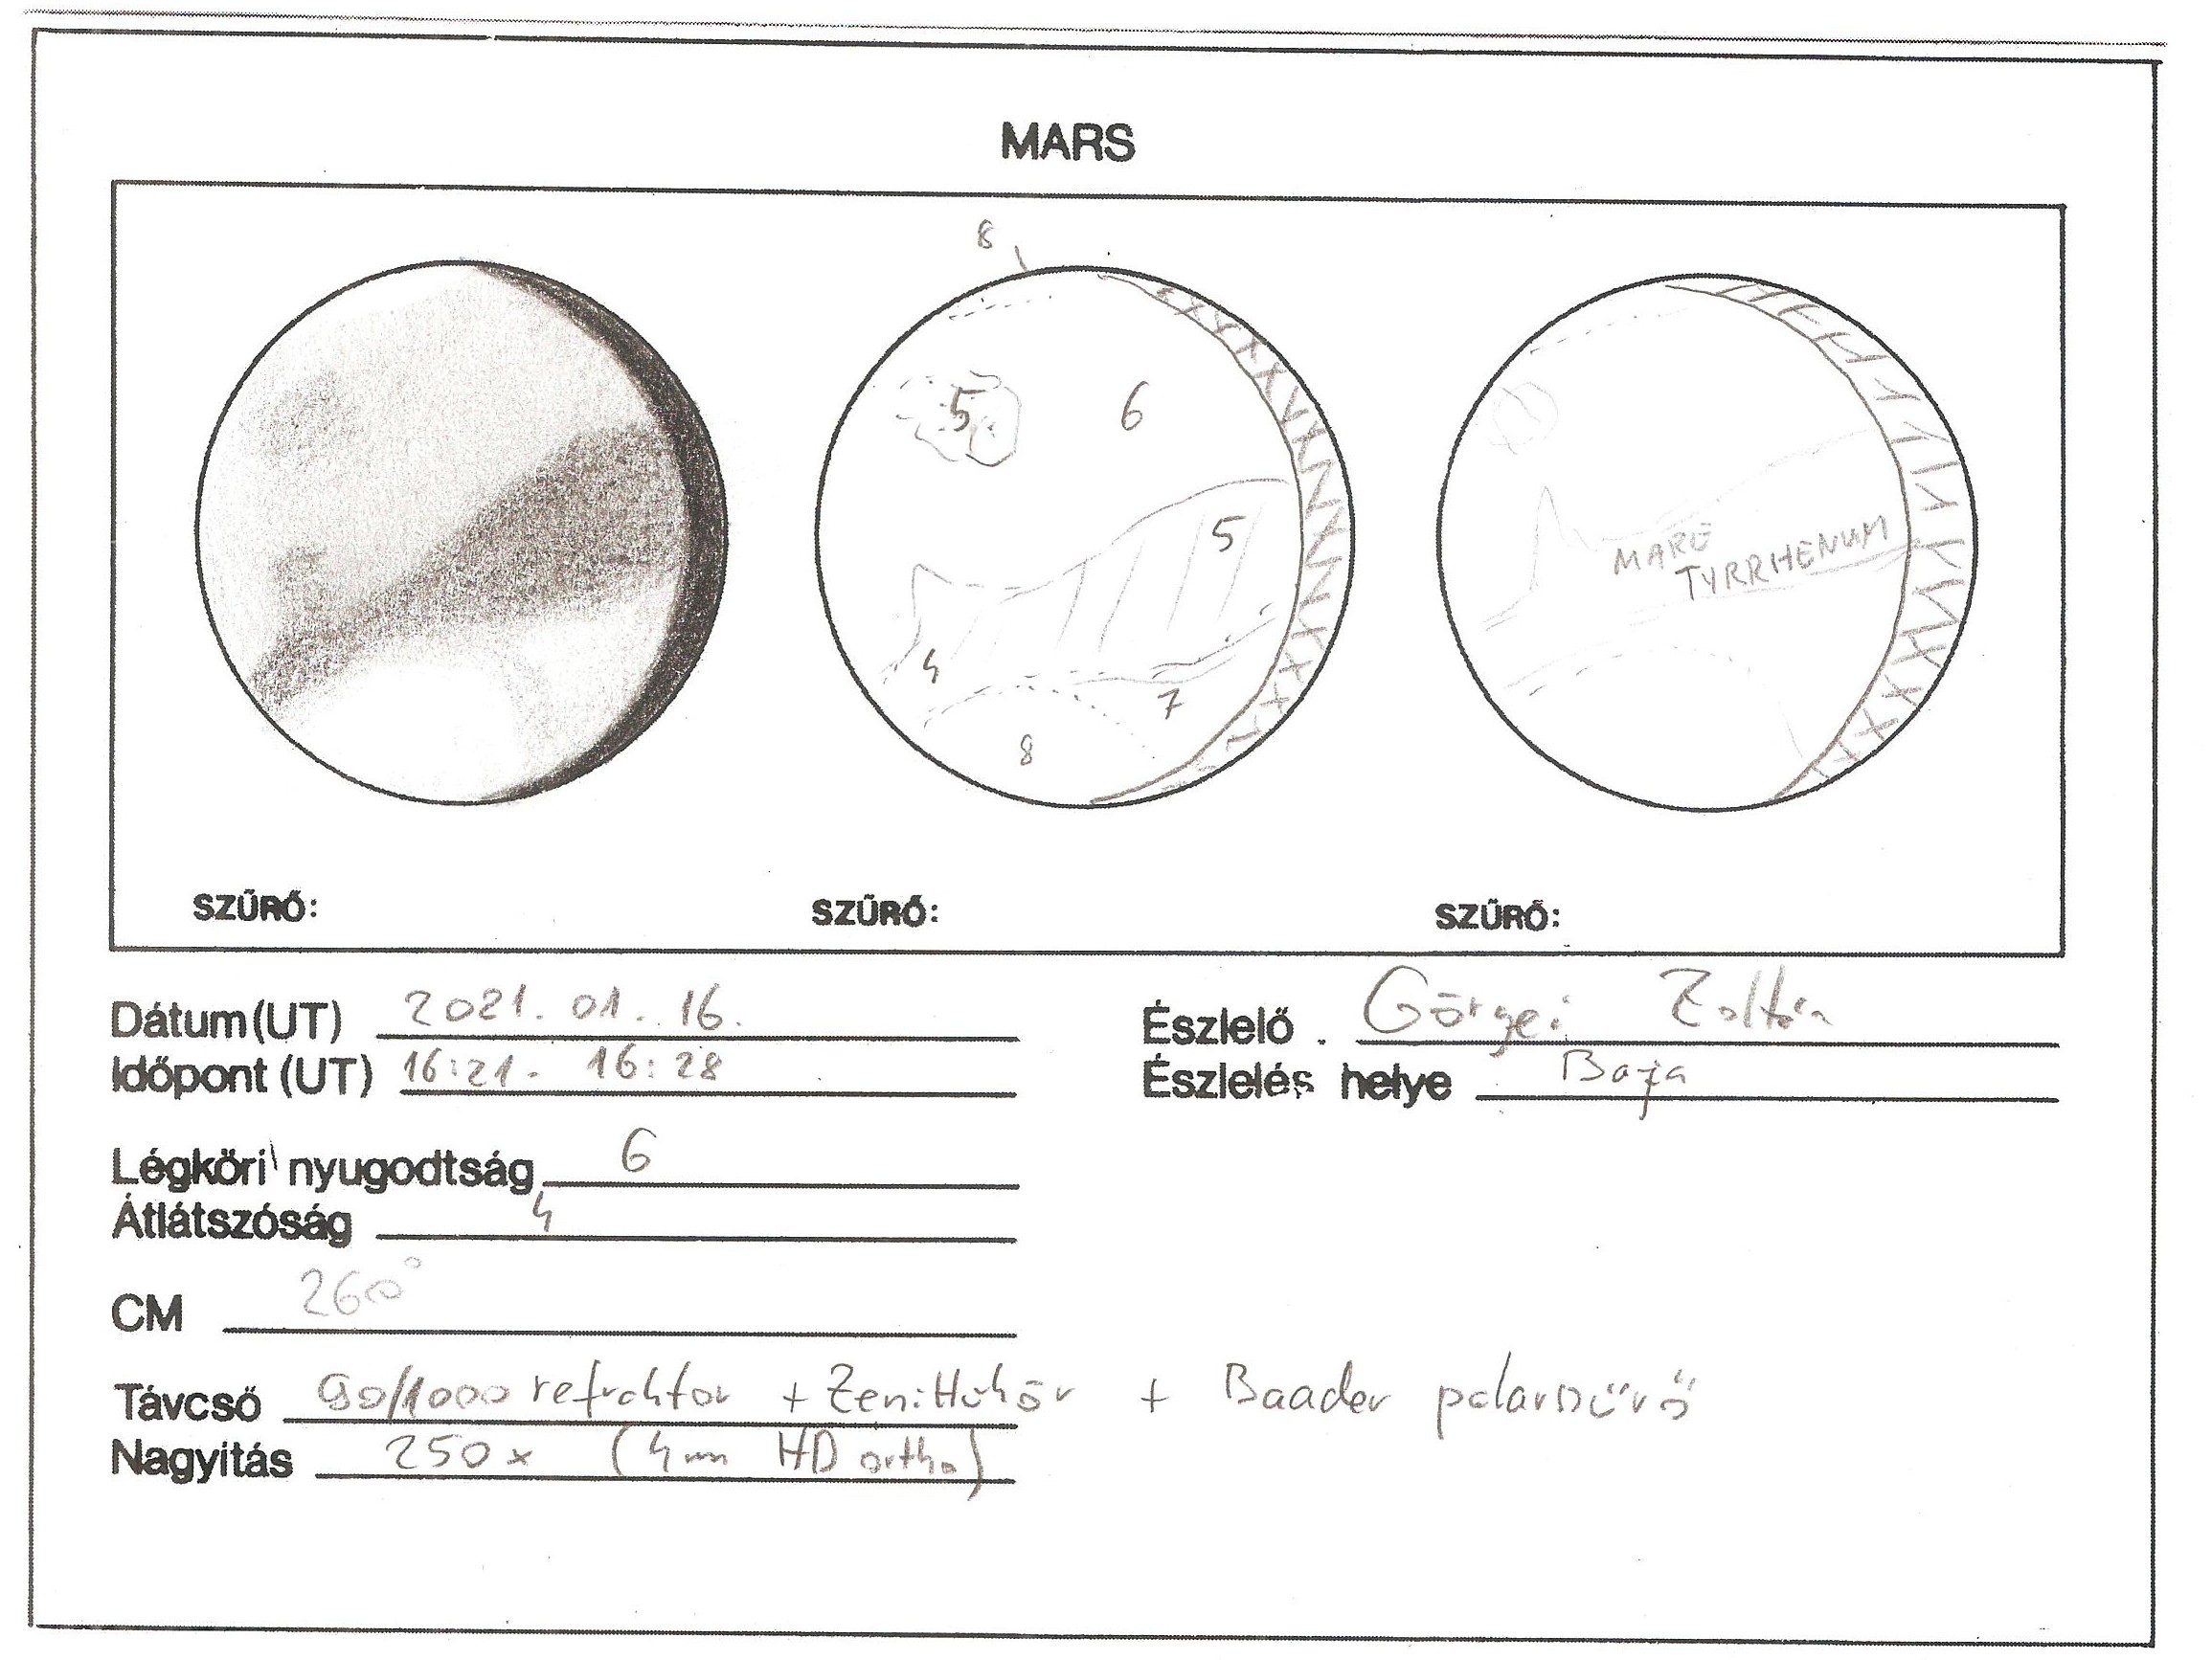 MARS
8
5 6
5
4
7
8
MARE
TYRRHENUM
SZŰRŐ: SZŰRŐ: SZŰRŐ:
Dátum (UT) 2021. 01. 16. Észlelő Görgei Zoltán
Időpont (UT) 16:21 - 16:28 Észlelés helye Baja
Légköri nyugodtság 6
Átlátszóság 4
CM 260°
Távcső 90/1000 refraktor + Zenittükör + Baader polárszűrő
Nagyitás 250x (4mm HD ortho)